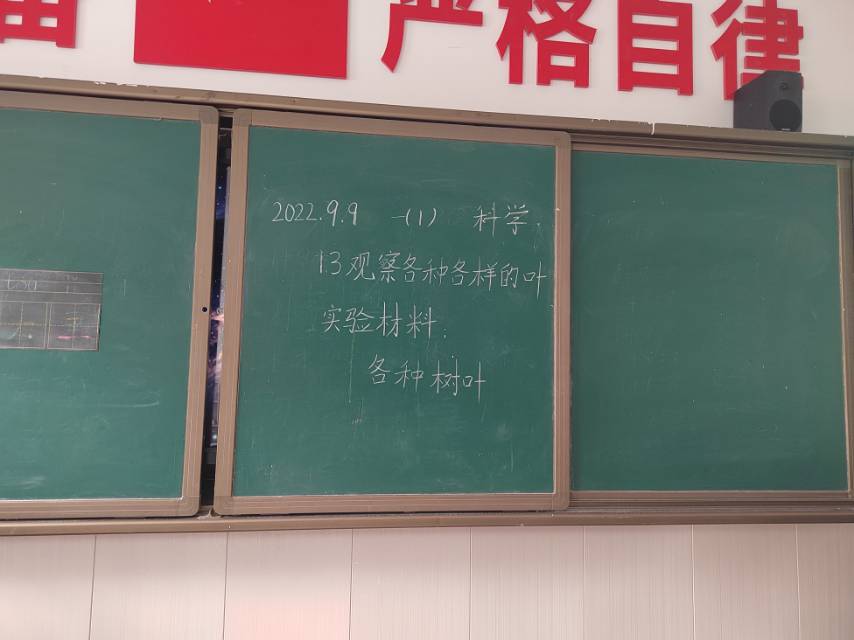 严格自律
2022.9.9 一(1) 科学
1.3观察各种各样的叶
实验材料:
各种树叶